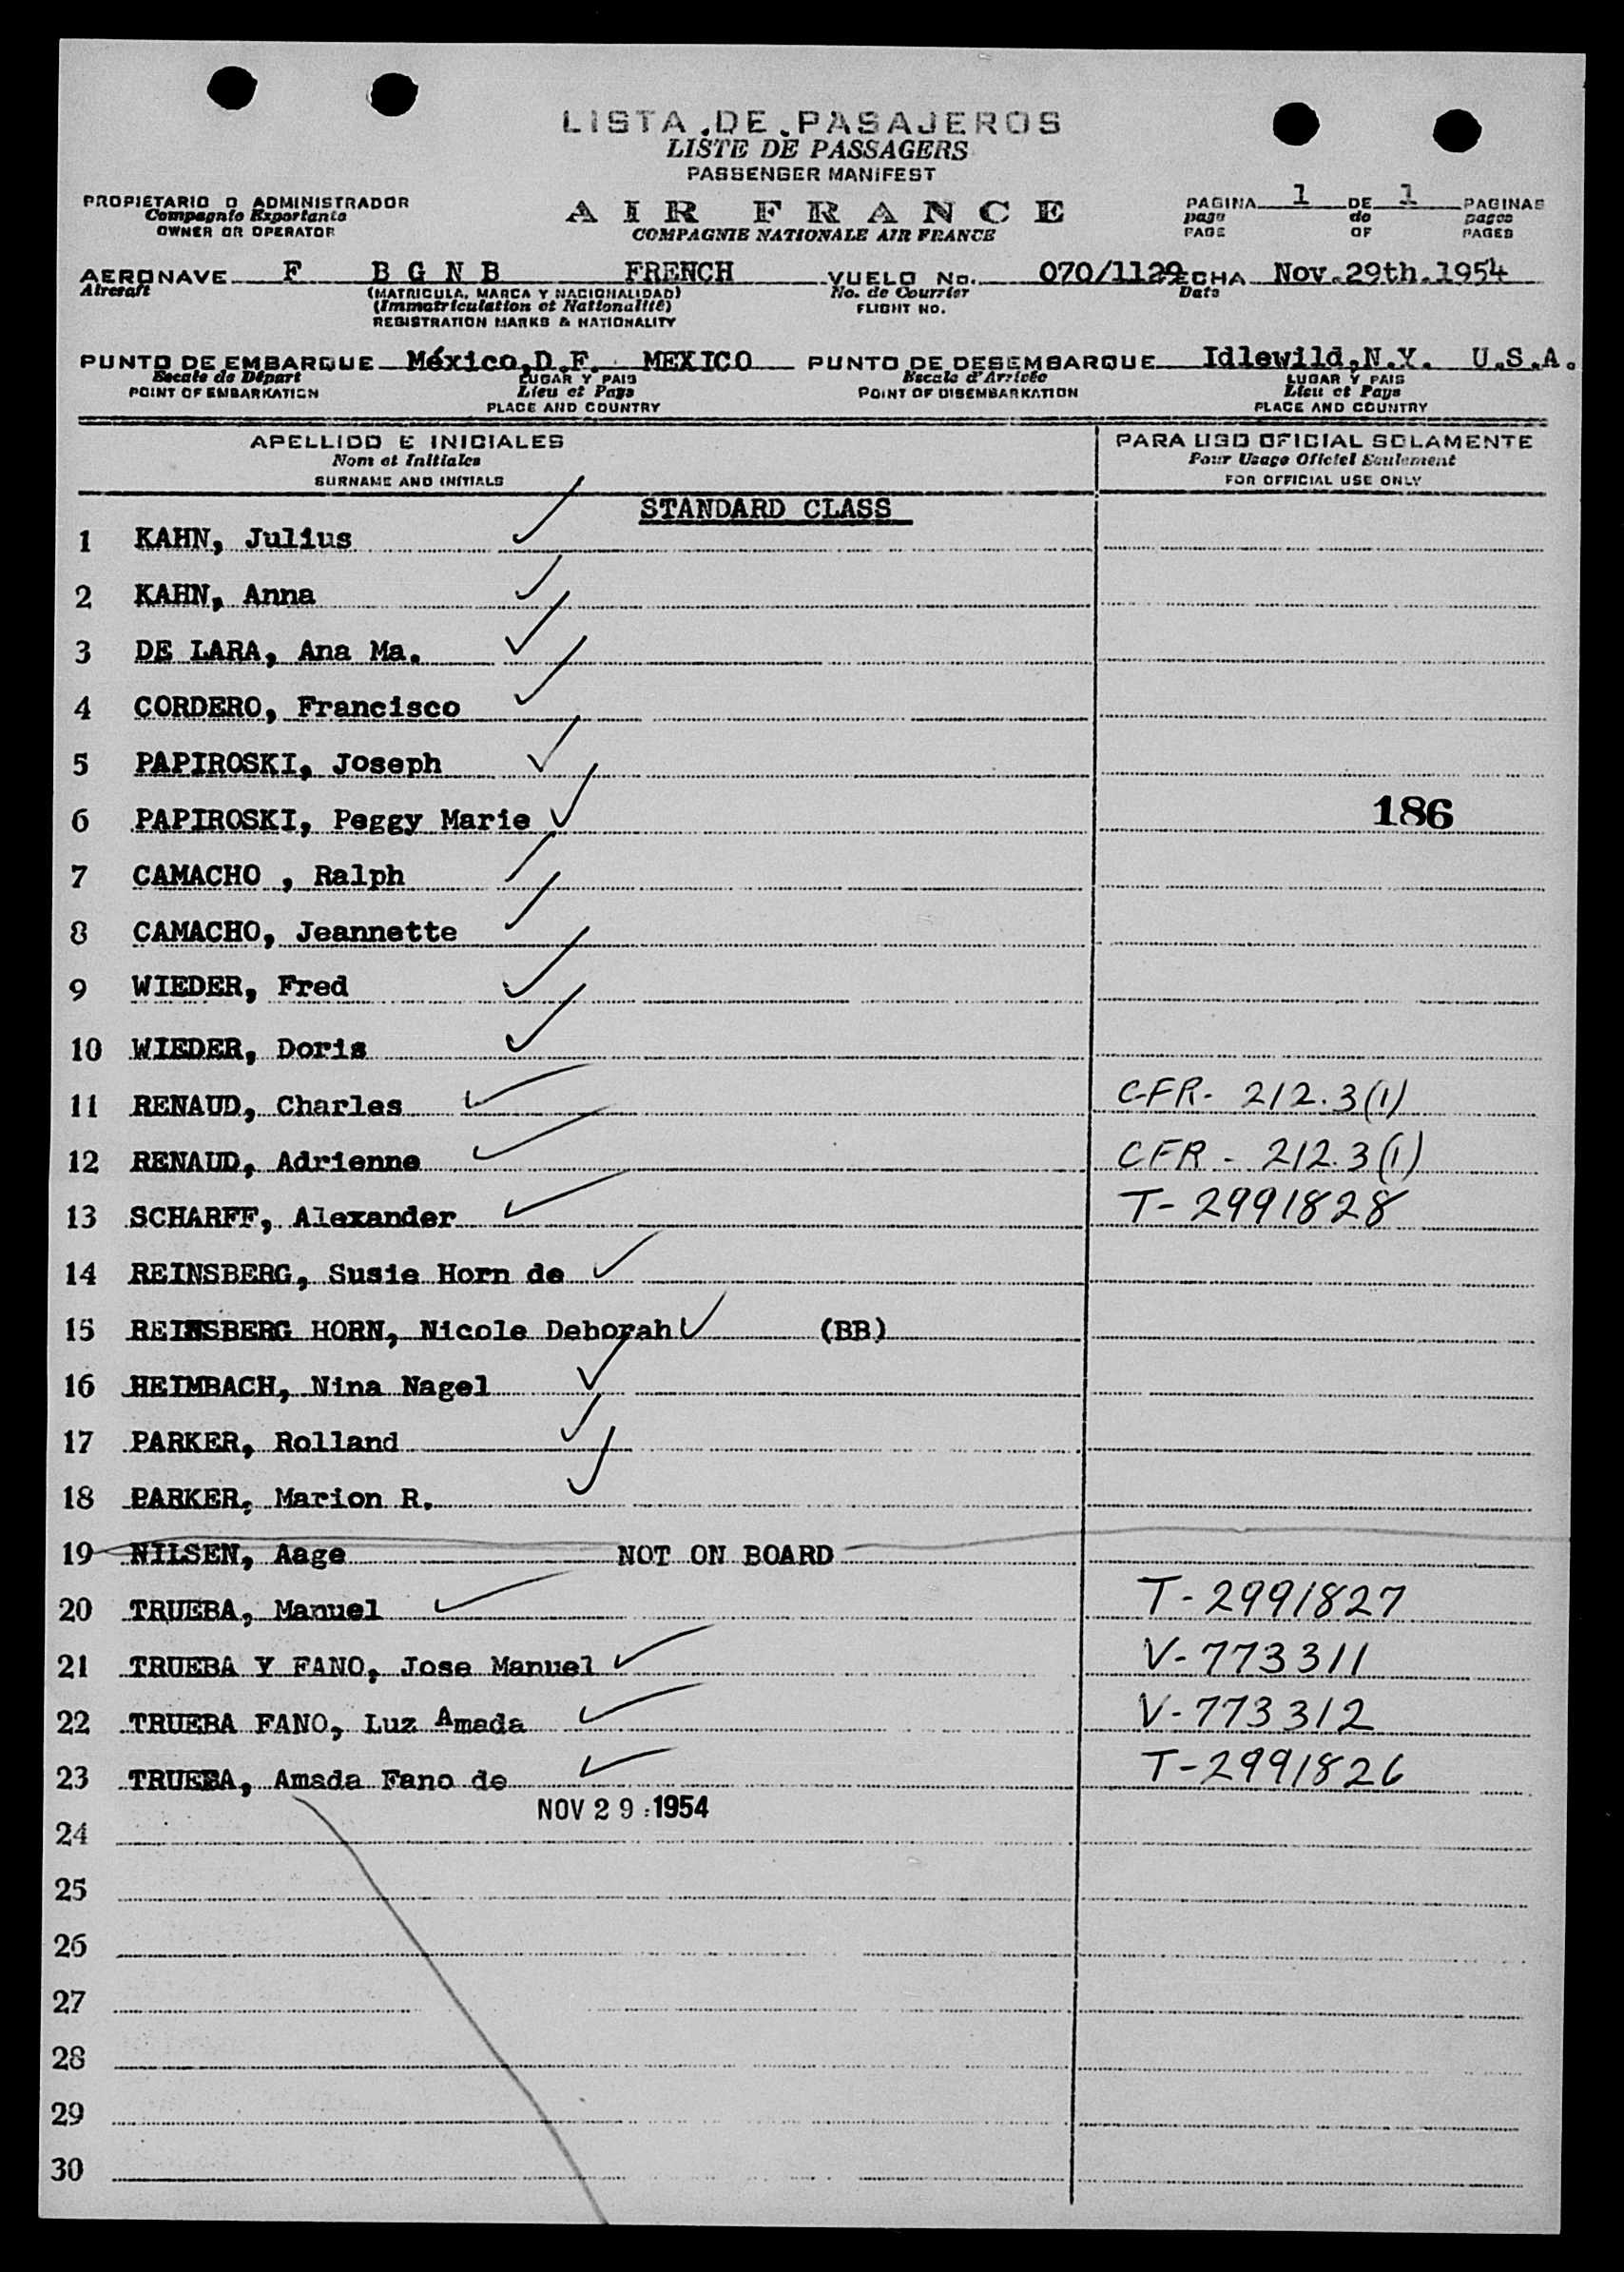 LISTA DE PASAJEROS
LISTE DE PASSAGERS
PASSENGER MANIFEST
PROPIETARIO O ADMINISTRADOR
Compagnie Exportante
OWNER OR OPERATOR
AIR FRANCE
COMPAGNIE NATIONALE AIR FRANCE
PAGINA 1 DE 1 PAGINAS
page de pages
PAGE OF PAGES
AERONAVE F B G N B FRENCH VUELO No. 070/1129 FECHA Nov.29th.1954
Aircraft (MATRICULA, MARCA Y NACIONALIDAD) No. de Courrier Date
(Immatriculation et Nationalité) FLIGHT NO.
REGISTRATION MARKS & NATIONALITY
PUNTO DE EMBARQUE México,D.F. MEXICO PUNTO DE DESEMBARQUE Idlewild,N.Y. U.S.A.
Escale de Départ LUGAR Y PAIS Escale d'Arrivée LUGAR Y PAIS
POINT OF EMBARKATION Lieu et Pays POINT OF DISEMBARKATION Lieu et Pays
PLACE AND COUNTRY PLACE AND COUNTRY
APELLIDO E INICIALES PARA USO OFICIAL SOLAMENTE
Nom et Initiales Pour Usage Oficiel Seulement
SURNAME AND INITIALS FOR OFFICIAL USE ONLY
STANDARD CLASS
1 KAHN, Julius
2 KAHN, Anna
3 DE LARA, Ana Ma.
4 CORDERO, Francisco
5 PAPIROSKI, Joseph
6 PAPIROSKI, Peggy Marie 186
7 CAMACHO , Ralph
8 CAMACHO, Jeannette
9 WIEDER, Fred
10 WIEDER, Doris
11 RENAUD, Charles CFR- 212.3(1)
12 RENAUD, Adrienne CFR - 212.3(1)
13 SCHARFF, Alexander T-2991828
14 REINSBERG, Susie Horn de
15 REINSBERG HORN, Nicole Deborah (BB)
16 HEIMBACH, Nina Nagel
17 PARKER, Rolland
18 PARKER, Marion R.
19 NILSEN, Aage NOT ON BOARD
20 TRUEBA, Manuel T-2991827
21 TRUEBA Y FANO, Jose Manuel V-773311
22 TRUEBA FANO, Luz Amada V-773312
23 TRUEBA, Amada Fano de T-2991826
NOV 29 1954
24
25
26
27
28
29
30